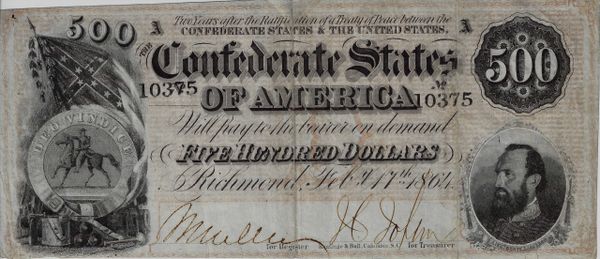 Two Years after the Ratification of a Treaty of Peace between the
500 A CONFEDERATE STATES & THE UNITED STATES. A
THE Confederate States 500
10375 OF AMERICA No 10375
Will pay to the bearer on demand
FIVE HUNDRED DOLLARS
DEO VINDICE
Richmond, Feby. 17th, 1864.
for Register Keatinge & Ball, Columbia, S.C. for Treasurer